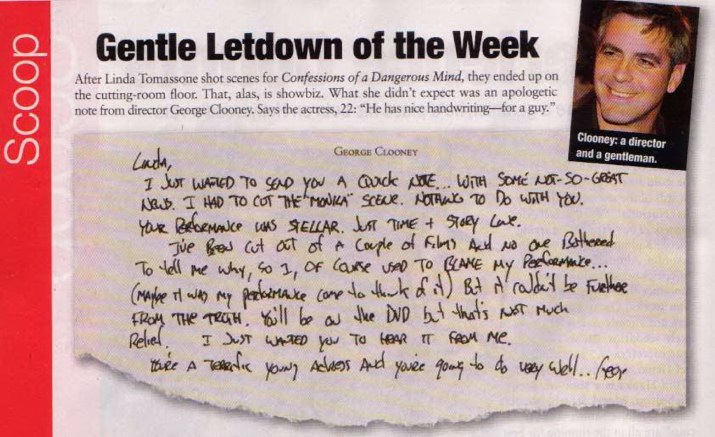 Scoop
Gentle Letdown of the Week
After Linda Tomassone shot scenes for Confessions of a Dangerous Mind, they ended up on
the cutting-room floor. That, alas, is showbiz. What she didn't expect was an apologetic
note from director George Clooney. Says the actress, 22: “He has nice handwriting—for a guy.”
Clooney: a director
and a gentleman.
GEORGE CLOONEY
Linda,
I JUST WANTED TO SEND YOU A QUICK NOTE... WITH SOME NOT-SO-GREAT
NEWS. I HAD TO CUT THE "MONICA" SCENE. NOTHING TO DO WITH YOU.
YOUR PERFORMANCE WAS STELLAR. JUST TIME + STORY LINE.
I'VE BEEN CUT OUT OF A COUPLE OF FILMS AND NO ONE BOTHERED
TO TELL ME WHY, SO I, OF COURSE USED TO BLAME MY PERFORMANCE...
(MAYBE IT WAS MY PERFORMANCE COME TO THINK OF IT) BUT IT COULDN'T BE FURTHER
FROM THE TRUTH. YOU'LL BE ON THE DVD BUT THAT'S NOT MUCH
RELIEF. I JUST WANTED YOU TO HEAR IT FROM ME.
YOU'RE A TERRIFIC YOUNG ACTRESS AND YOU'RE GOING TO DO VERY WELL..